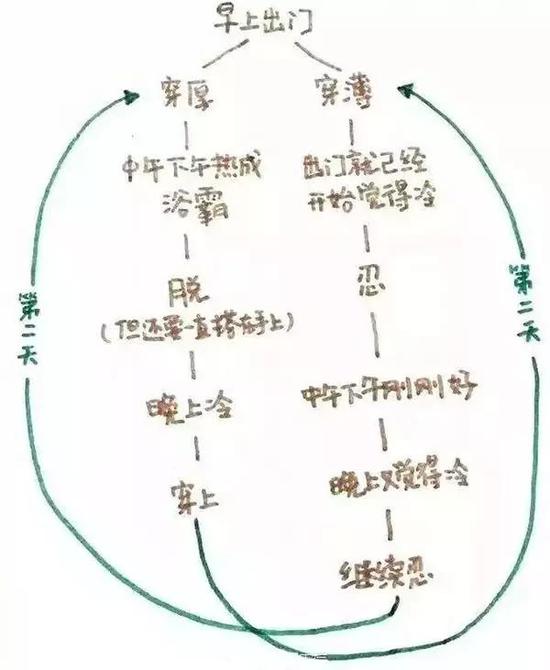 早上出门
穿厚
中午下午热成
浴霸
脱
(但还要一直搭在手上)
晚上冷
穿上
穿薄
出门就已经
开始觉得冷
忍
中午下午刚刚好
晚上又觉得冷
继续忍
第二天
第二天